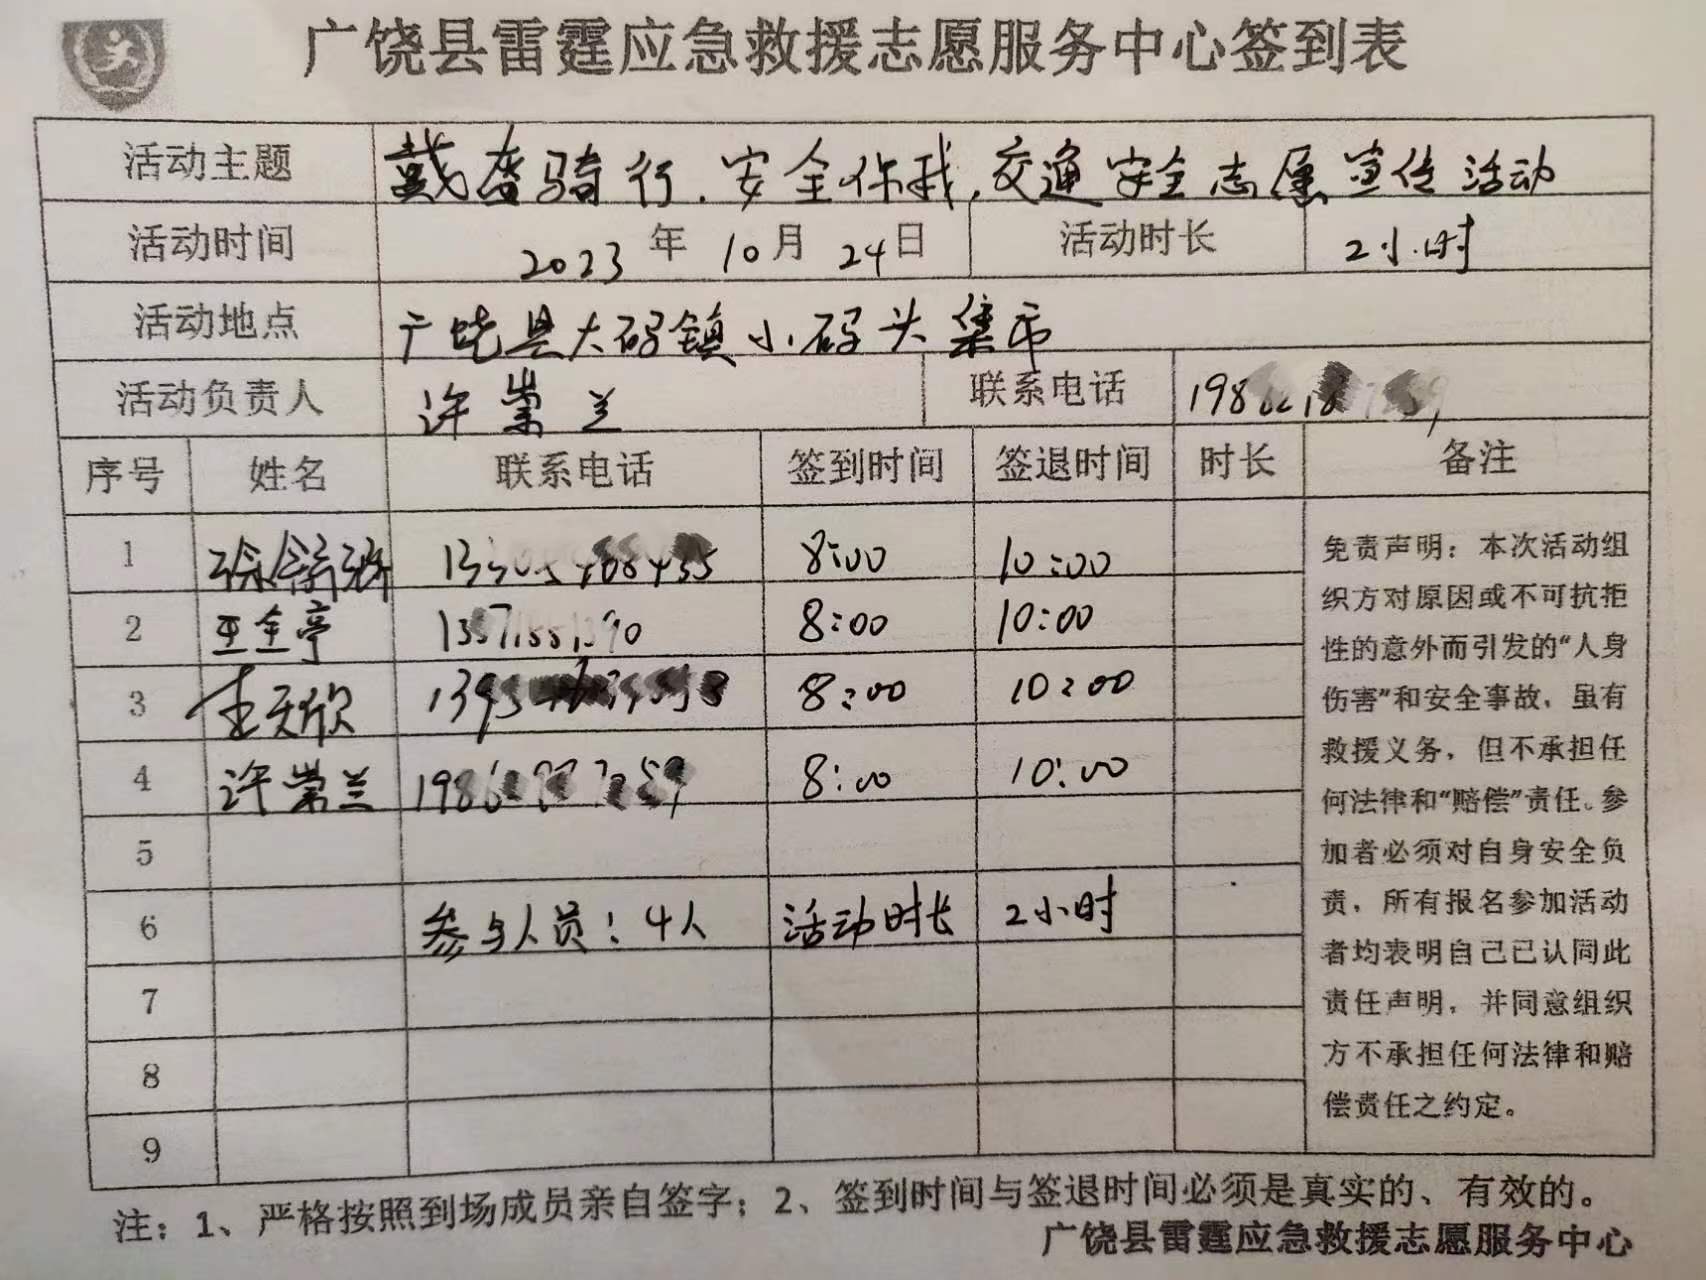 广饶县雷霆应急救援志愿服务中心签到表
活动主题 戴盔骑行.安全你我,交通安全志愿宣传活动
活动时间 2023年10月24日 活动时长 2小时
活动地点 广饶县大码镇小码头集市
活动负责人 许崇兰 联系电话 198
序号 姓名 联系电话 签到时间 签退时间 时长 备注
1 8:00 10:00
2 王全亭 8:00 10:00
3 8:00 10:00
4 许崇兰 8:00 10:00
5
6 参与人员:4人 活动时长 2小时
7
8
9
免责声明：本次活动组
织方对原因或不可抗拒
性的意外而引发的“人身
伤害”和安全事故，虽有
救援义务，但不承担任
何法律和“赔偿”责任。参
加者必须对自身安全负
责，所有报名参加活动
者均表明自己已认同此
责任声明，并同意组织
方不承担任何法律和赔
偿责任之约定。
注：1、严格按照到场成员亲自签字；2、签到时间与签退时间必须是真实的、有效的。
广饶县雷霆应急救援志愿服务中心